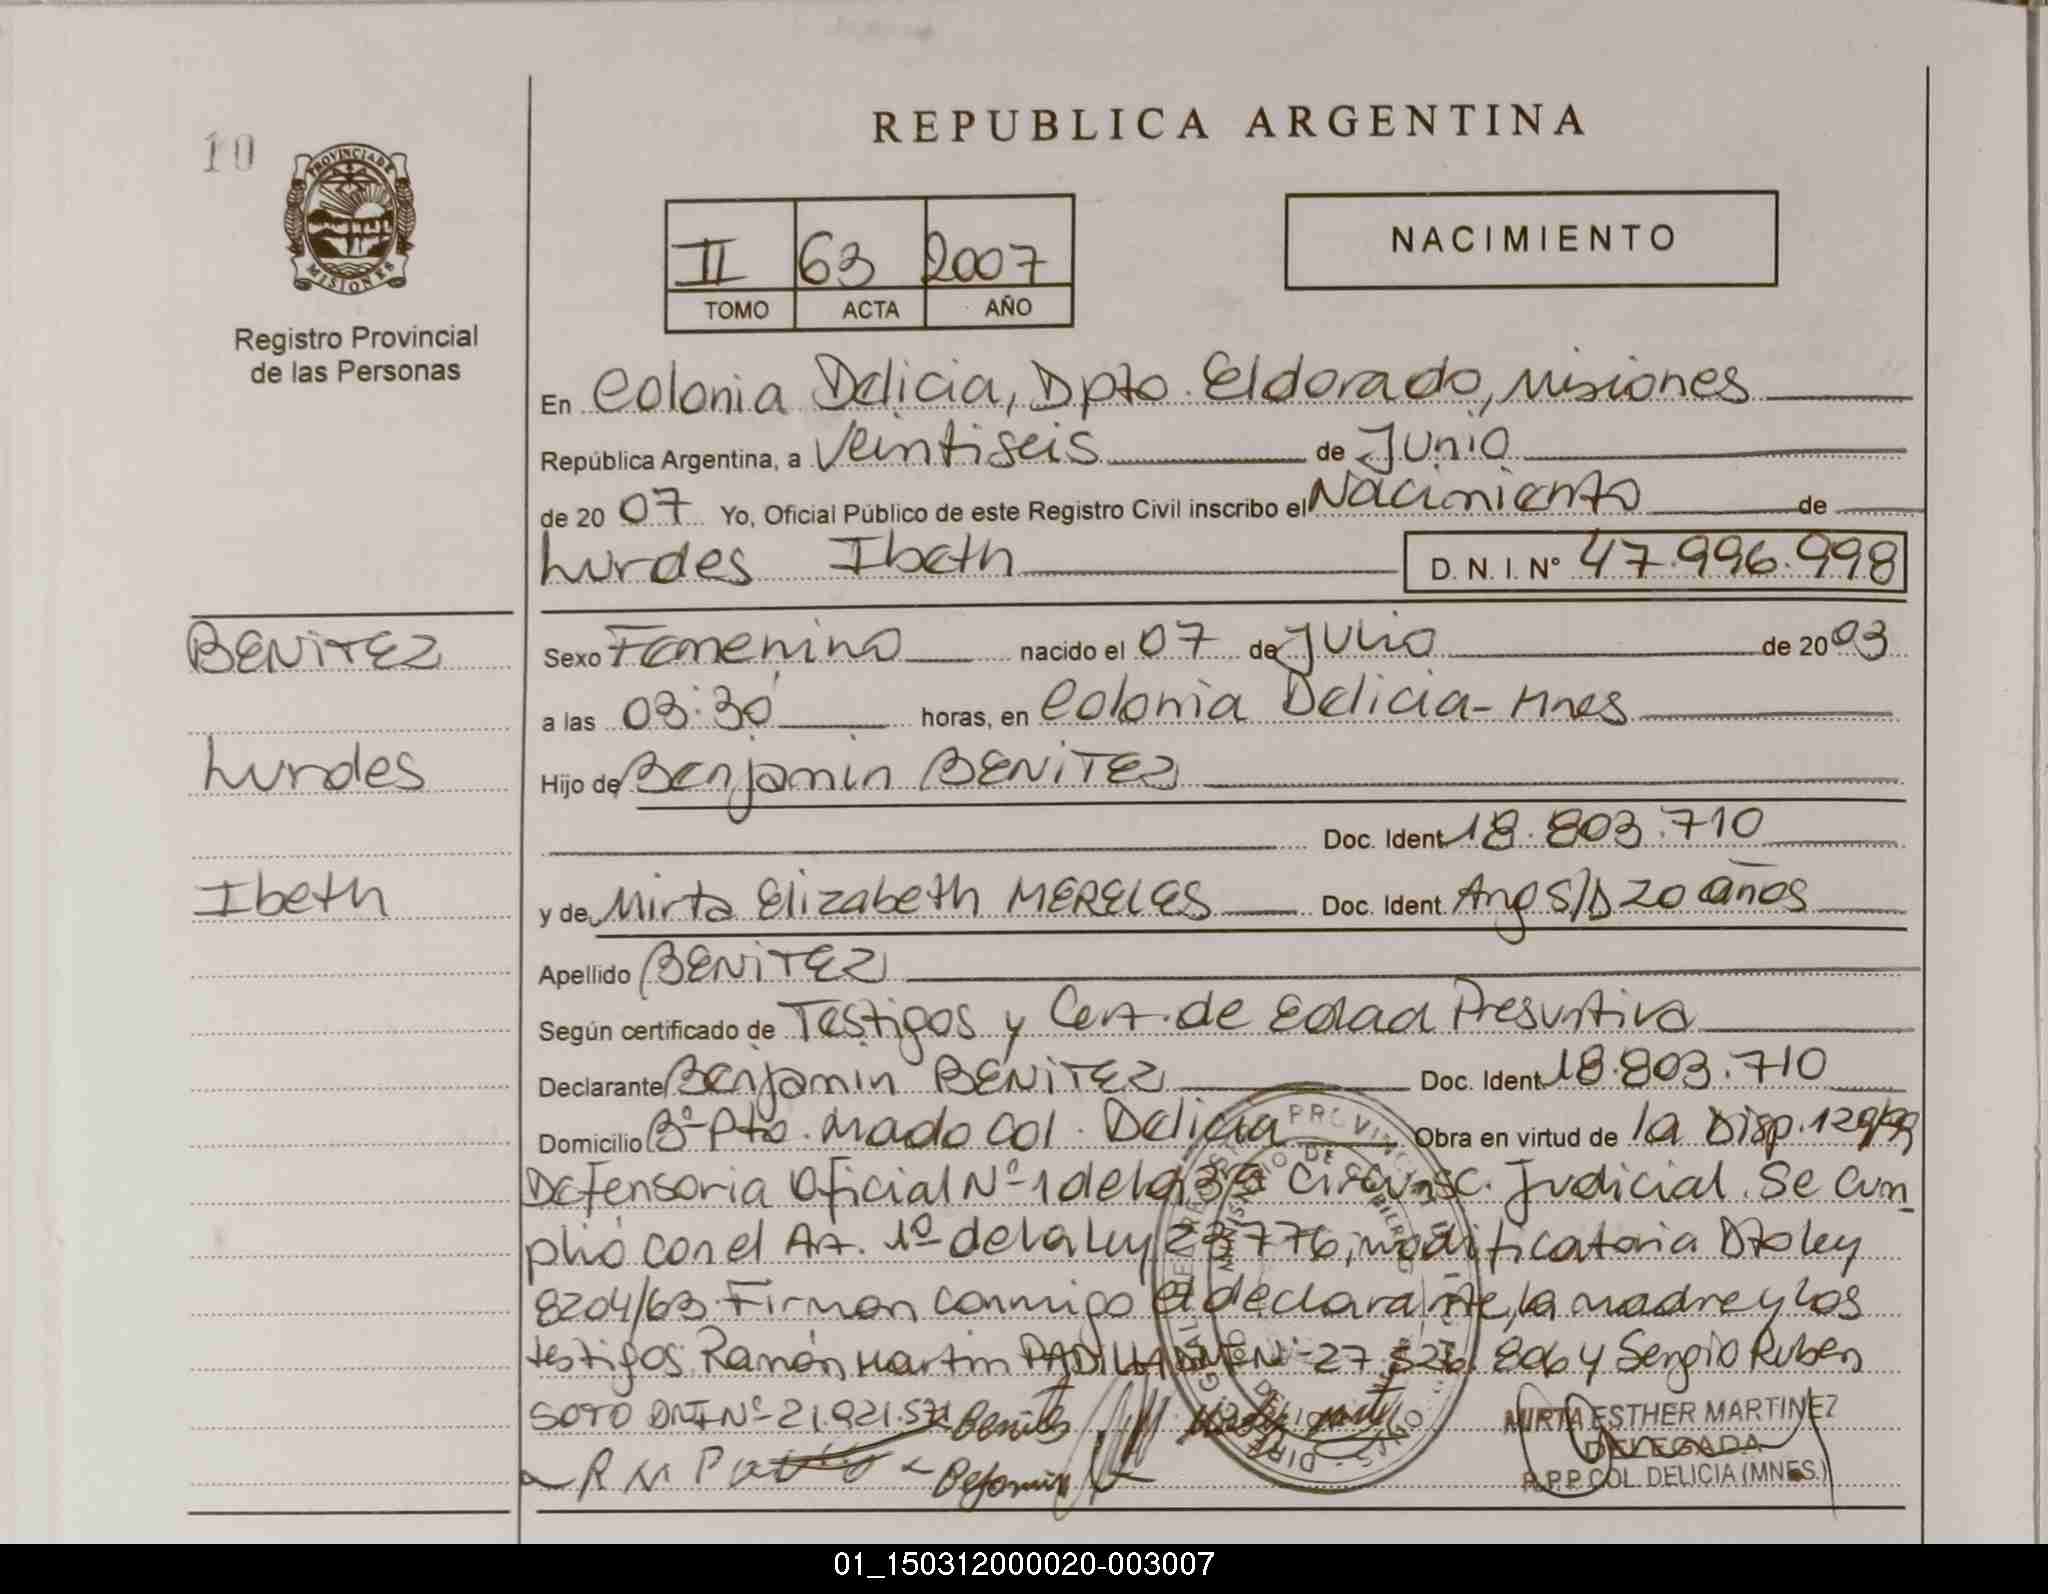 10
PROVINCIA DE
MISIONES
Registro Provincial
de las Personas
REPUBLICA ARGENTINA
II 63 2007
TOMO ACTA AÑO
NACIMIENTO
En Colonia Delicia, Dpto. Eldorado, Misiones
República Argentina, a Veintiseis de Junio
de 20 07 Yo, Oficial Público de este Registro Civil inscribo el Nacimiento de
Lurdes Ibeth D. N. I. Nº 47.996.998
BENITEZ
Lurdes
Ibeth
Sexo Femenino nacido el 07 de Julio de 20 03
a las 03:30 horas, en Colonia Delicia - Mnes
Hijo de Benjamin BENITEZ
Doc. Ident 18.803.710
y de Mirta Elizabeth MERELES Doc. Ident. Arg S/D 20 años
Apellido BENITEZ
Según certificado de Testigos y Cert. de Edad Presuntiva
Declarante Benjamin BENITEZ Doc. Ident 18.803.710
Domicilio Bº Pto. Mado Col. Delicia Obra en virtud de la Disp. 129/99
Defensoria Oficial Nº 1 de la 3ra Circunsc. Judicial. Se cum
plió con el Art. 1º de la Ley 23776, modificatoria Dto Ley
8204/63. Firman conmigo el declarante, la madre y los
testigos Ramón Martin PADILLA DNI Nº 27.526.806 y Sergio Ruben
SOTO DNI Nº 21.921.571 Benites
R M
MIRTA ESTHER MARTINEZ
DELEGADA
R.P.P. COL. DELICIA (MNES.)
01_150312000020-003007